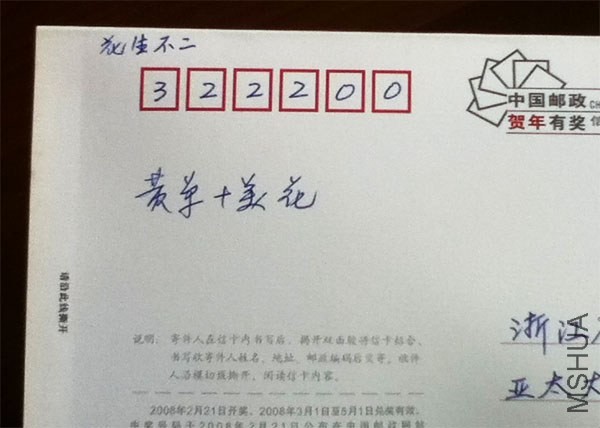 花生不二
322200
中国邮政
贺年有奖
黄草+美花
请沿此线撕开
浙江
亚太大
说明：寄件人在信卡内书写后，揭开双面胶将信卡粘合，
书写收寄件人姓名、地址、邮政编码后交寄。收件
人沿模切线撕开，阅读信卡内容。
2008年2月21日开奖，2008年3月1日至5月1日兑奖有效。
2008年2月21日公布在中国邮政网站
MSHUA